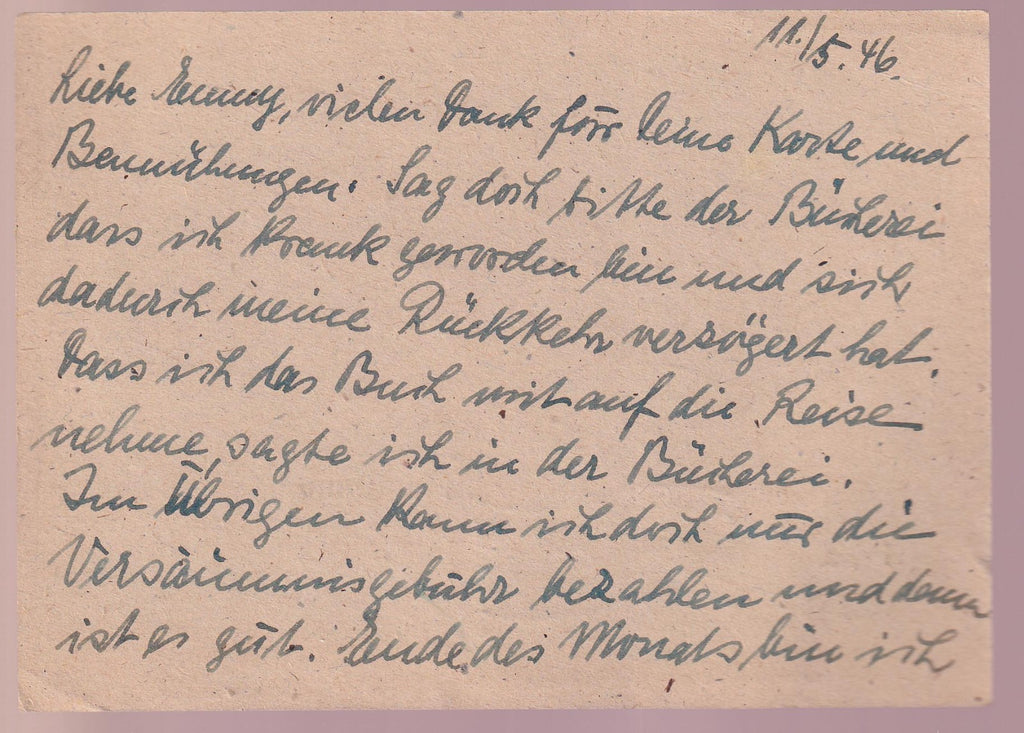 11./5.46.
Liebe Emmy, vielen Dank för Deine Karte und
Bemühungen. Sag doch bitte der Bücherei
dass ich krank geworden bin und sich
dadurch meine Rückkehr verzögert hat.
Dass ich das Buch mit auf die Reise
nehme, sagte ich in der Bücherei.
Im Übrigen kann ich doch nur die
Versäumnisgebühr bezahlen und dann
ist es gut. Ende des Monats bin ich